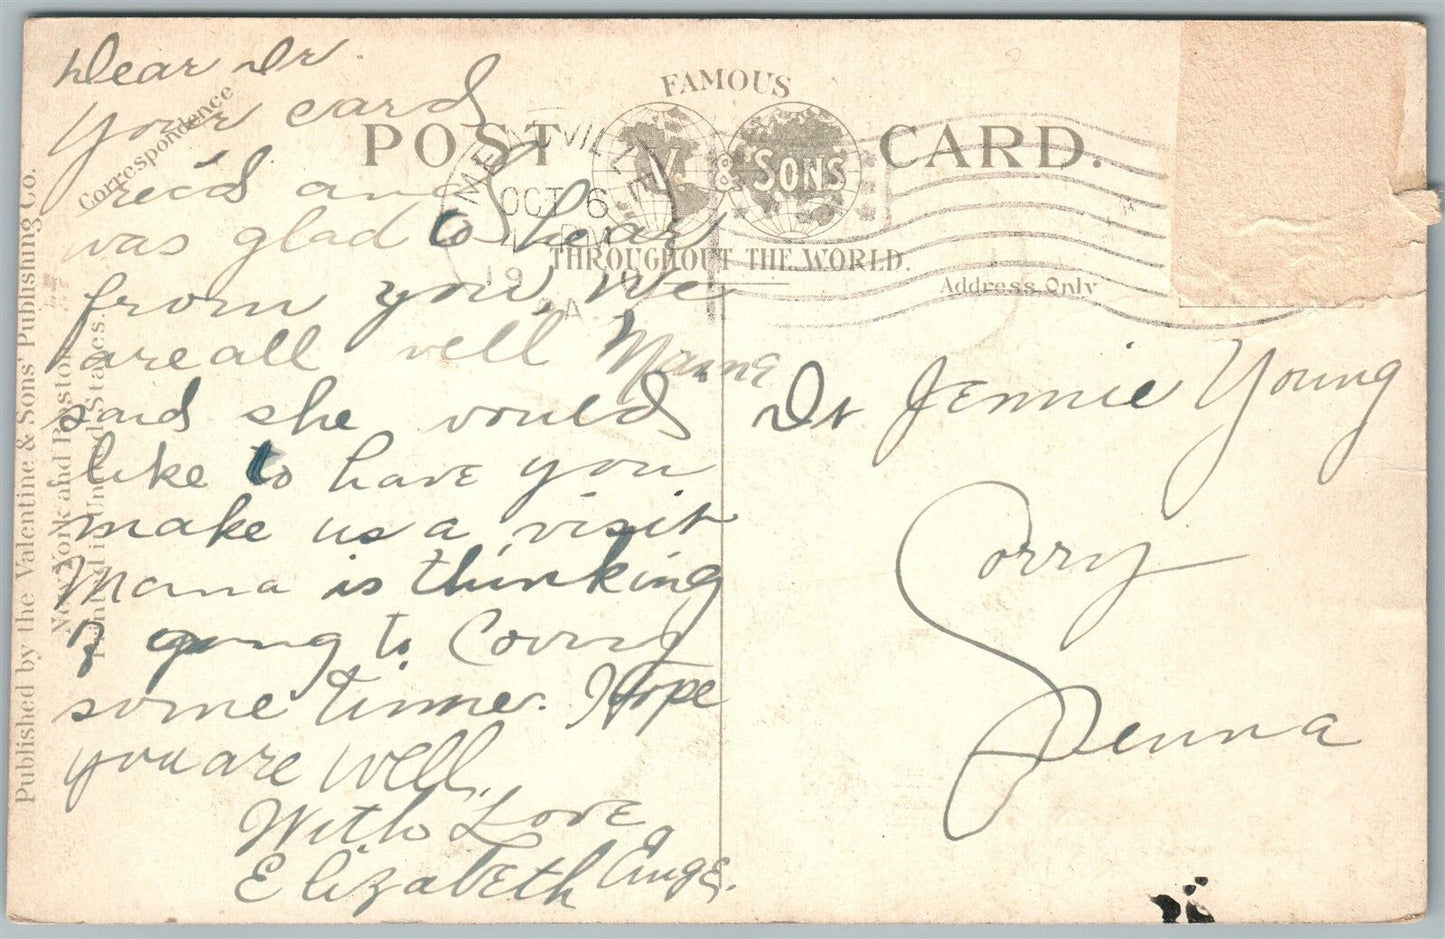 Dear Dr.
Your card
rec'd and
was glad to hear
from you We
are all well Mama
said she would
like to have you
make us a visit
Mama is thinking
of going to Corry
some time. Hope
you are well,
With Love
Elizabeth
Correspondence
FAMOUS
POST CARD.
V. & SONS
THROUGHOUT THE WORLD.
MEADVILLE
OCT 6
19
PA
Address Only
Dr Jennie Young
Corry
Penna
Published by the Valentine & Sons' Publishing Co.
New York and Boston
Printed in United States.